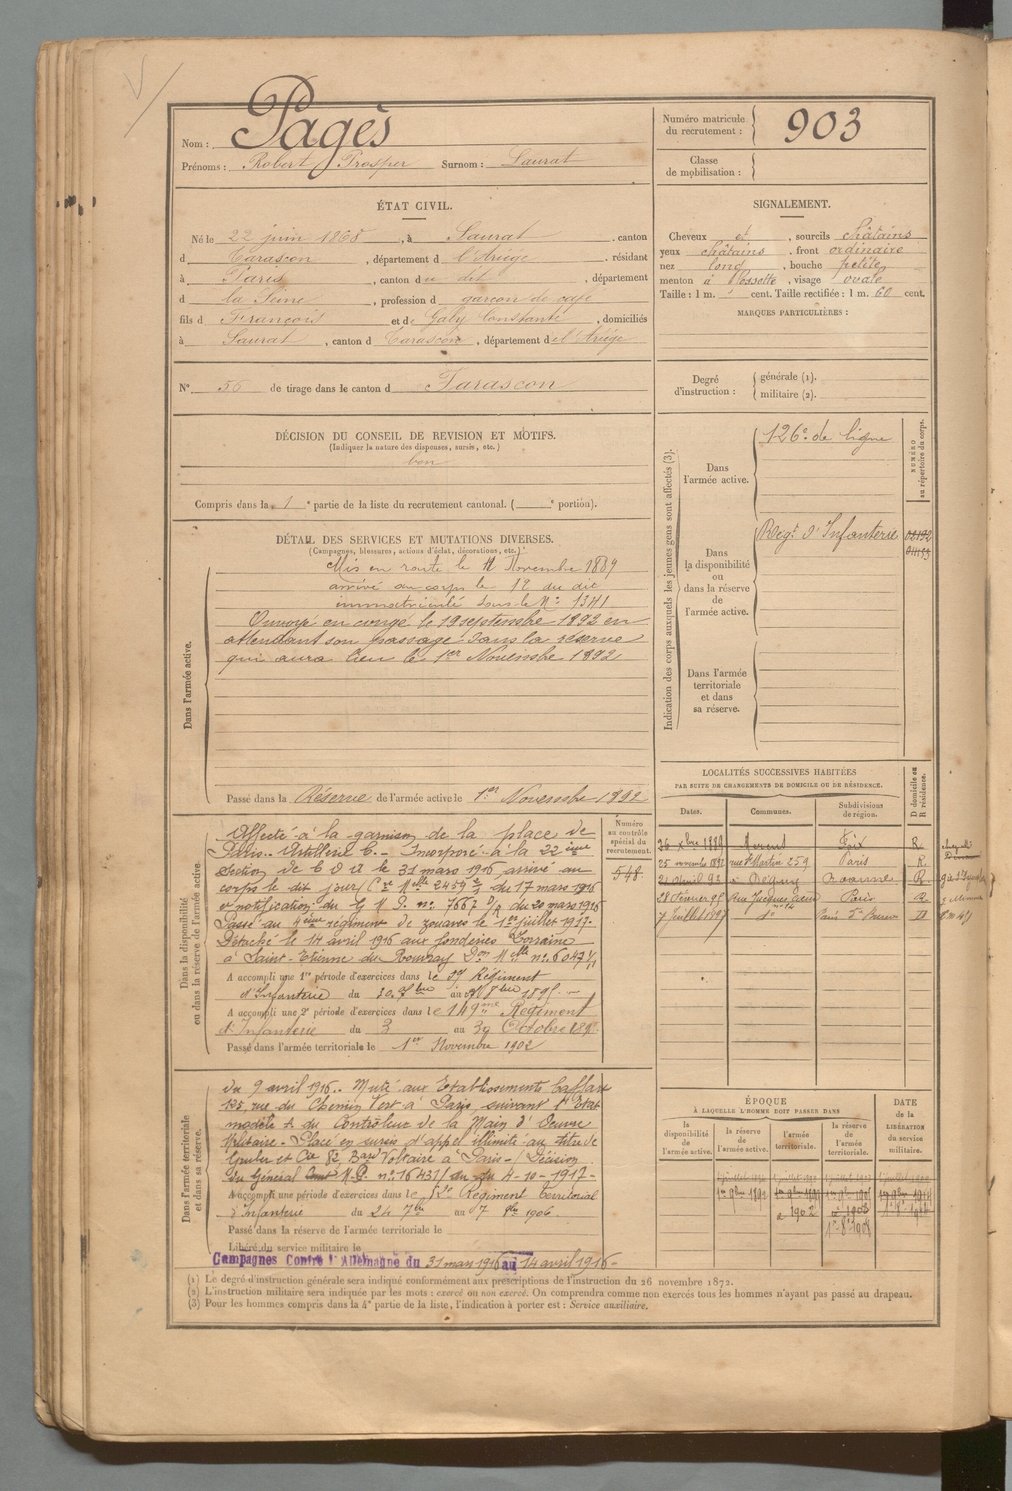 Nom : Pagès
Prénoms : Robert Prosper Surnom : Saurat
Numéro matricule du recrutement : 903
Classe de mobilisation :
ÉTAT CIVIL.
Né le 22 juin 1868, à Saurat, canton
d Tarascon, département d l'Ariège, résidant
à Paris, canton du dit, département
d la Seine, profession d garçon de café
fils d François et de Galy Constante, domiciliés
à Saurat, canton d Tarascon, département de l'Ariège
N° 56 de tirage dans le canton d Tarascon
SIGNALEMENT.
Cheveux et, sourcils châtains
yeux châtains, front ordinaire
nez long, bouche petite
menton à fossette, visage ovale
Taille : 1 m. cent. Taille rectifiée : 1 m. 60 cent.
MARQUES PARTICULIÈRES :
Degré d'instruction :
générale (1).
militaire (2).
DÉCISION DU CONSEIL DE REVISION ET MOTIFS.
(Indiquer la nature des dispenses, sursis, etc.)
bon
Compris dans la 1e partie de la liste du recrutement cantonal. ( e portion).
DÉTAIL DES SERVICES ET MUTATIONS DIVERSES.
(Campagnes, blessures, actions d'éclat, décorations, etc.)
Dans l'armée active.
Mis en route le 11 Novembre 1889
arrivé au corps le 12 du dit
immatriculé sous le N° 1341
Envoyé en congé le 19 septembre 1892 en
attendant son passage dans la réserve
qui aura lieu le 1er Novembre 1892
Passé dans la Réserve de l'armée active le 1er Novembre 1892
Indication des corps auxquels les jeunes gens sont affectés (3).
NUMÉRO au répertoire du corps.
Dans l'armée active.
126e de ligne
Dans la disponibilité ou dans la réserve de l'armée active.
Régt d'Infanterie
Dans l'armée territoriale et dans sa réserve.
Dans la disponibilité ou dans la réserve de l'armée active
Numéro au contrôle spécial du recrutement.
548
Affecté à la garnison de la place de
Paris. Artillerie C. Incorporé à la 22ème
Section de C O A le 31 mars 1916 arrivé au
corps le dit jour Cre Melle 2459 du 17 mars 1916
et notification du G M P. n° 7667 du 20 mars 1916
Passé au 4ème régiment de zouaves le 1er juillet 1917.
Détaché le 14 avril 1916 aux fonderies Lorraine
à Saint-Etienne du Rouvray Don Melle n° 6047
A accompli une 1re période d'exercices dans le Régiment
d'Infanterie du 30 7bre au 8bre 1895
A accompli une 2e période d'exercices dans le 149me Régiment
d'Infanterie du 3 au 30 Octobre
Passé dans l'armée territoriale le 1er Novembre 1902
Dans l'armée territoriale et dans sa réserve.
du 9 avril 1916. Muté aux Etablissements
rue du Chemin Vert à Paris suivant l'Etat
modèle A du Contrôleur de la Main d'Oeuvre
Militaire. Placé en sursis d'appel illimité au titre de
Gruber et Cie 82, Bard Voltaire à Paris. Décision
du Général M.P. n° 16431 du 4-10-1917
A accompli une période d'exercices dans le Régiment Territorial
d'Infanterie du 24 7bre au 7 8bre 1906.
Passé dans la réserve de l'armée territoriale le
Libéré du service militaire le
Campagnes Contre l'Allemagne du 31 mars 1916 au 14 avril 1916
LOCALITÉS SUCCESSIVES HABITÉES
PAR SUITE DE CHANGEMENTS DE DOMICILE OU DE RÉSIDENCE.
Dates. Communes. Subdivisions de région. D domicile ou R résidence.
26 Xbre 1889 Foix R.
25 novembre 1892 rue St Martin 259 Paris R.
Roanne R
28 Février 95 Rue Jacques Paris R
7 Juillet 1897 do D
ÉPOQUE
À LAQUELLE L'HOMME DOIT PASSER DANS
la disponibilité de l'armée active.
la réserve de l'armée active.
l'armée territoriale.
la réserve de l'armée territoriale.
DATE de la LIBÉRATION du service militaire.
1er 9bre 1892
1902
1908
(1) Le degré d'instruction générale sera indiqué conformément aux prescriptions de l'instruction du 26 novembre 1872.
(2) L'instruction militaire sera indiquée par les mots : exercé ou non exercé. On comprendra comme non exercés tous les hommes n'ayant pas passé au drapeau.
(3) Pour les hommes compris dans la 4e partie de la liste, l'indication à porter est : Service auxiliaire.